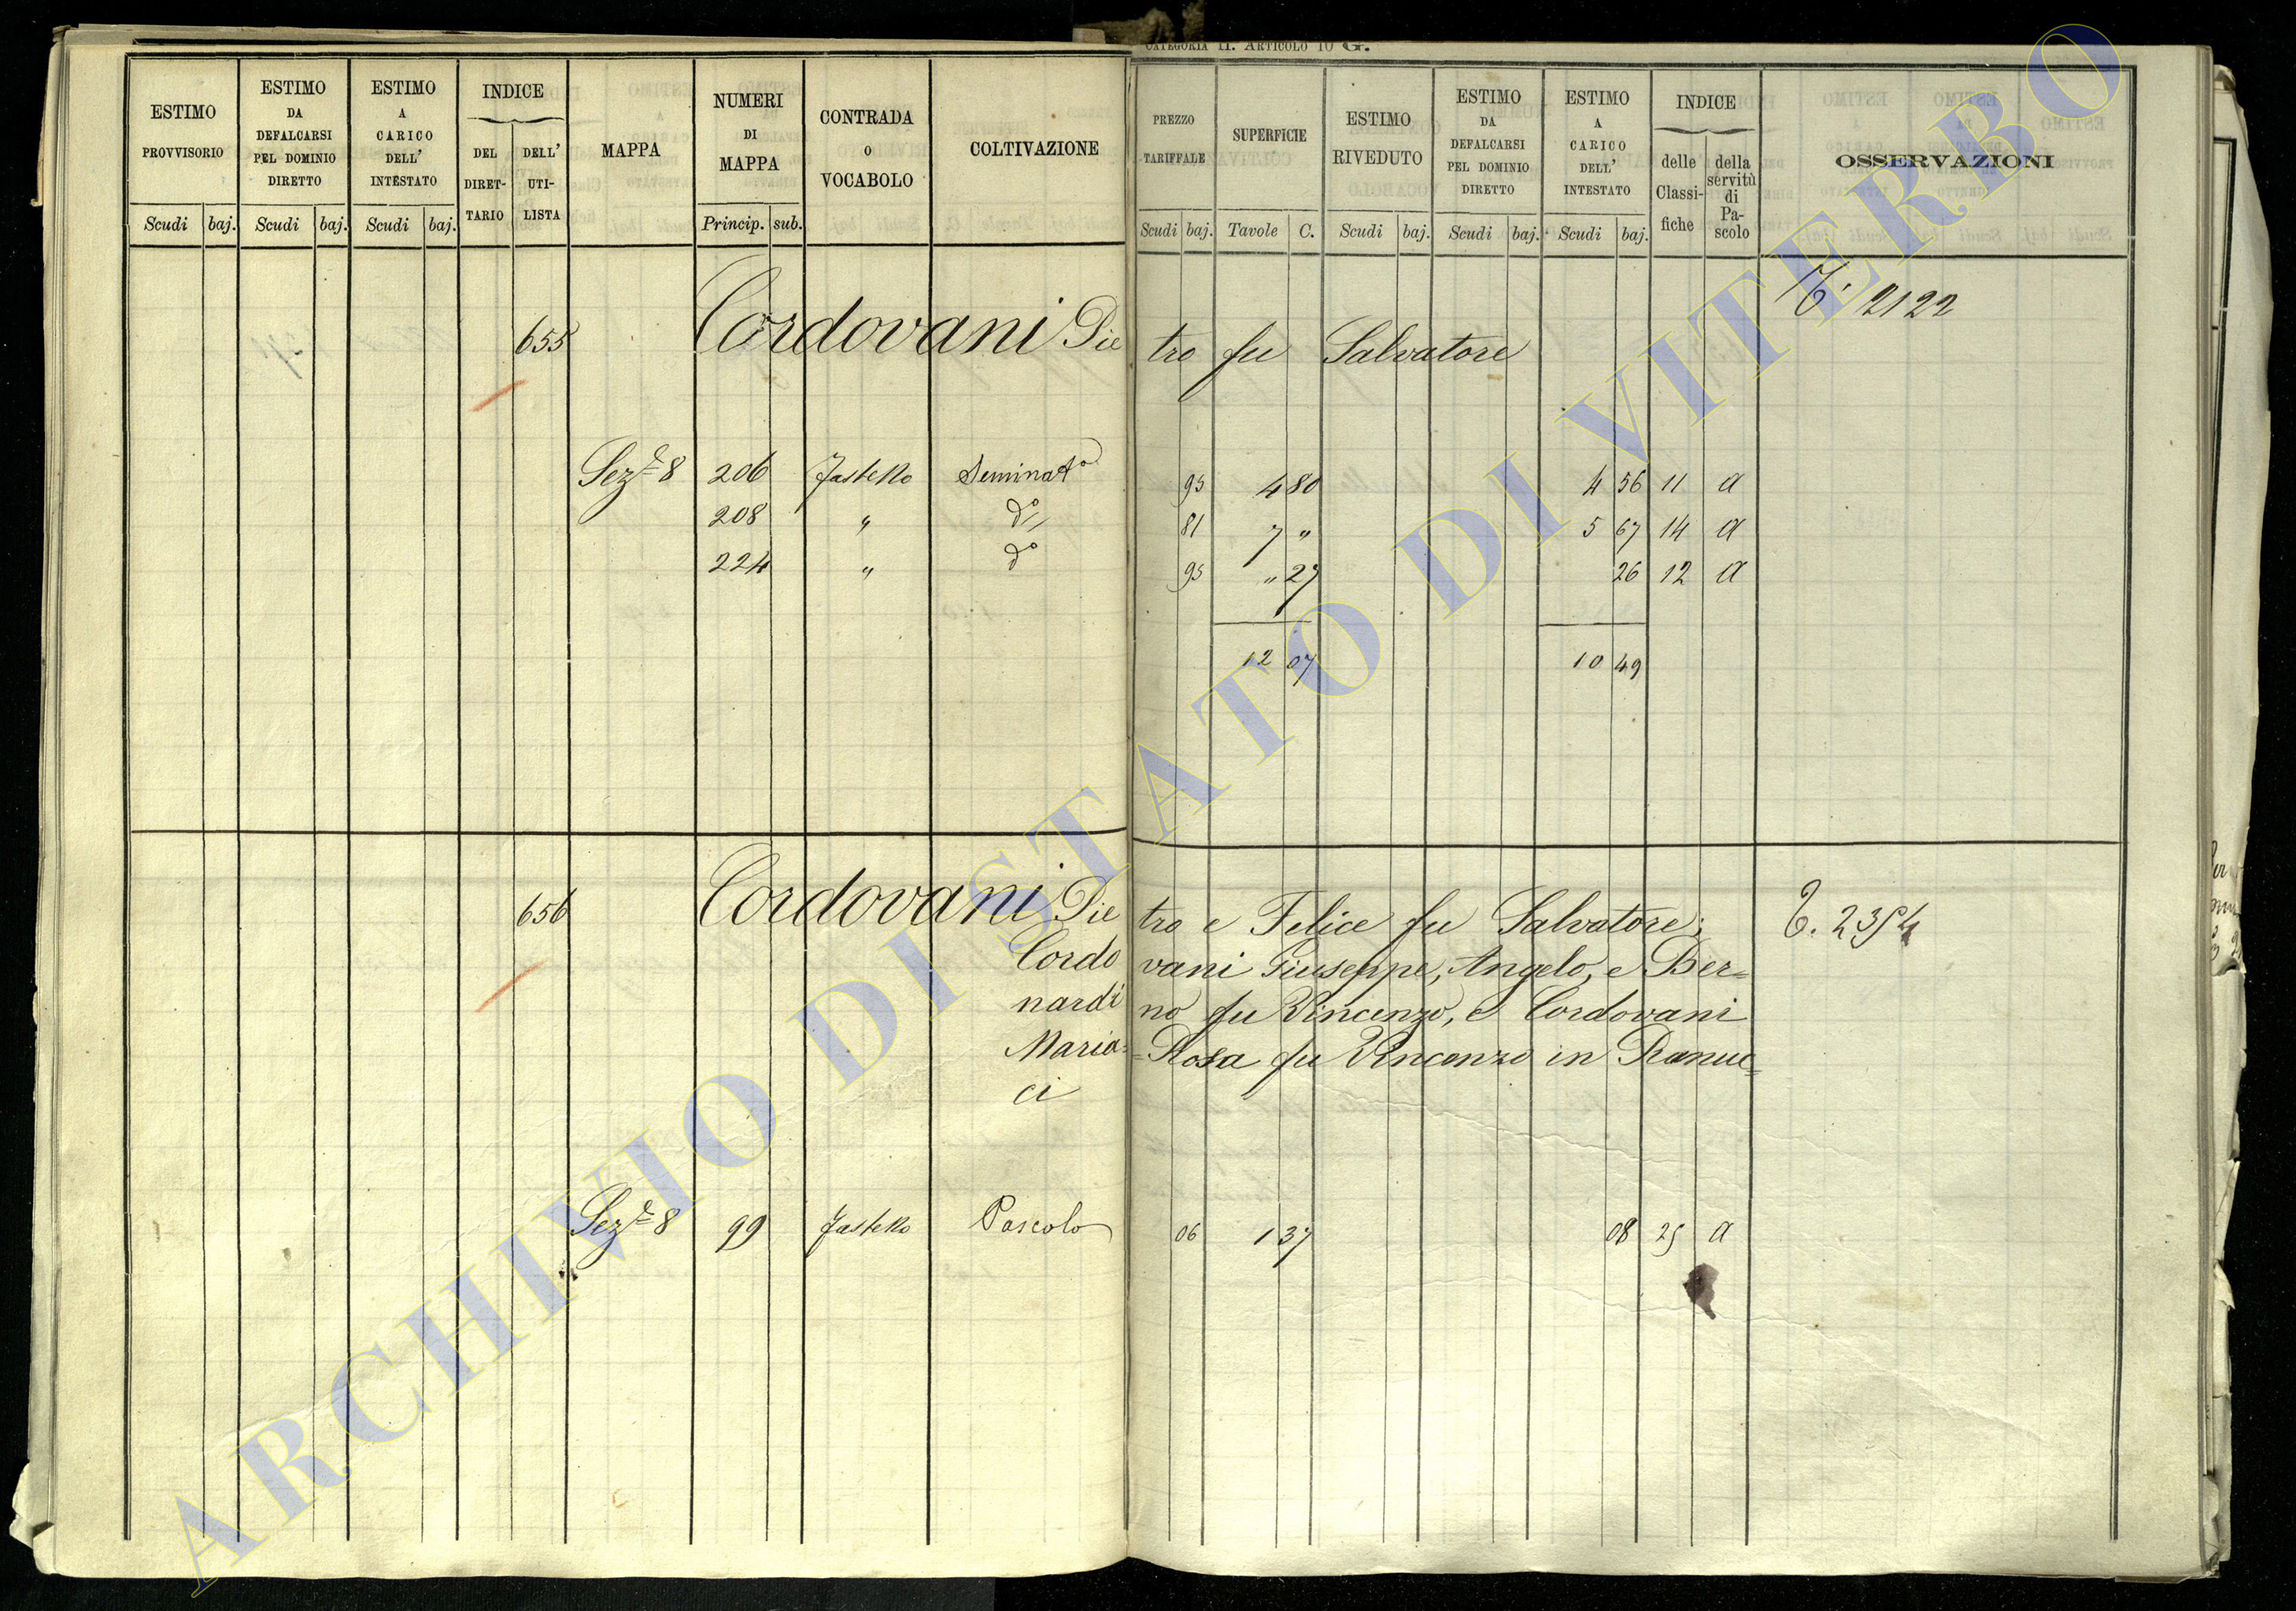 CATEGORIA II. ARTICOLO 10 G.
ESTIMO PROVVISORIO Scudi baj.
ESTIMO DA DEFALCARSI PEL DOMINIO DIRETTO Scudi baj.
ESTIMO A CARICO DELL' INTESTATO Scudi baj.
INDICE DEL DIRET-TARIO DELL' UTI-LISTA
MAPPA
NUMERI DI MAPPA Princip. sub.
CONTRADA O VOCABOLO
COLTIVAZIONE
PREZZO TARIFFALE Scudi baj.
SUPERFICIE Tavole C.
ESTIMO RIVEDUTO Scudi baj.
ESTIMO DA DEFALCARSI PEL DOMINIO DIRETTO Scudi baj.
ESTIMO A CARICO DELL' INTESTATO Scudi baj.
INDICE delle Classi-fiche della servitù di Pa-scolo
OSSERVAZIONI
T. 2122
655 Cordovani Pietro fu Salvatore
Sez.e 8 206 Sminat.o 95 4 80 4 56 11 a
208 " d.o 81 7 " 5 67 14 a
224 " d.o 95 " 27 26 12 a
12 07 10 49
656 Cordovani Pietro e Felice fu Salvatore; T. 2354
Cordovani Giuseppe, Angelo, e Ber=
nardino fu Vincenzo, e Cordovani
Maria=Rosa fu Vincenzo in Ranuc=
ci
Sez.e 8 99 Pascolo 06 1 37 08 25 a
ARCHIVIO DI STATO DI VITERBO